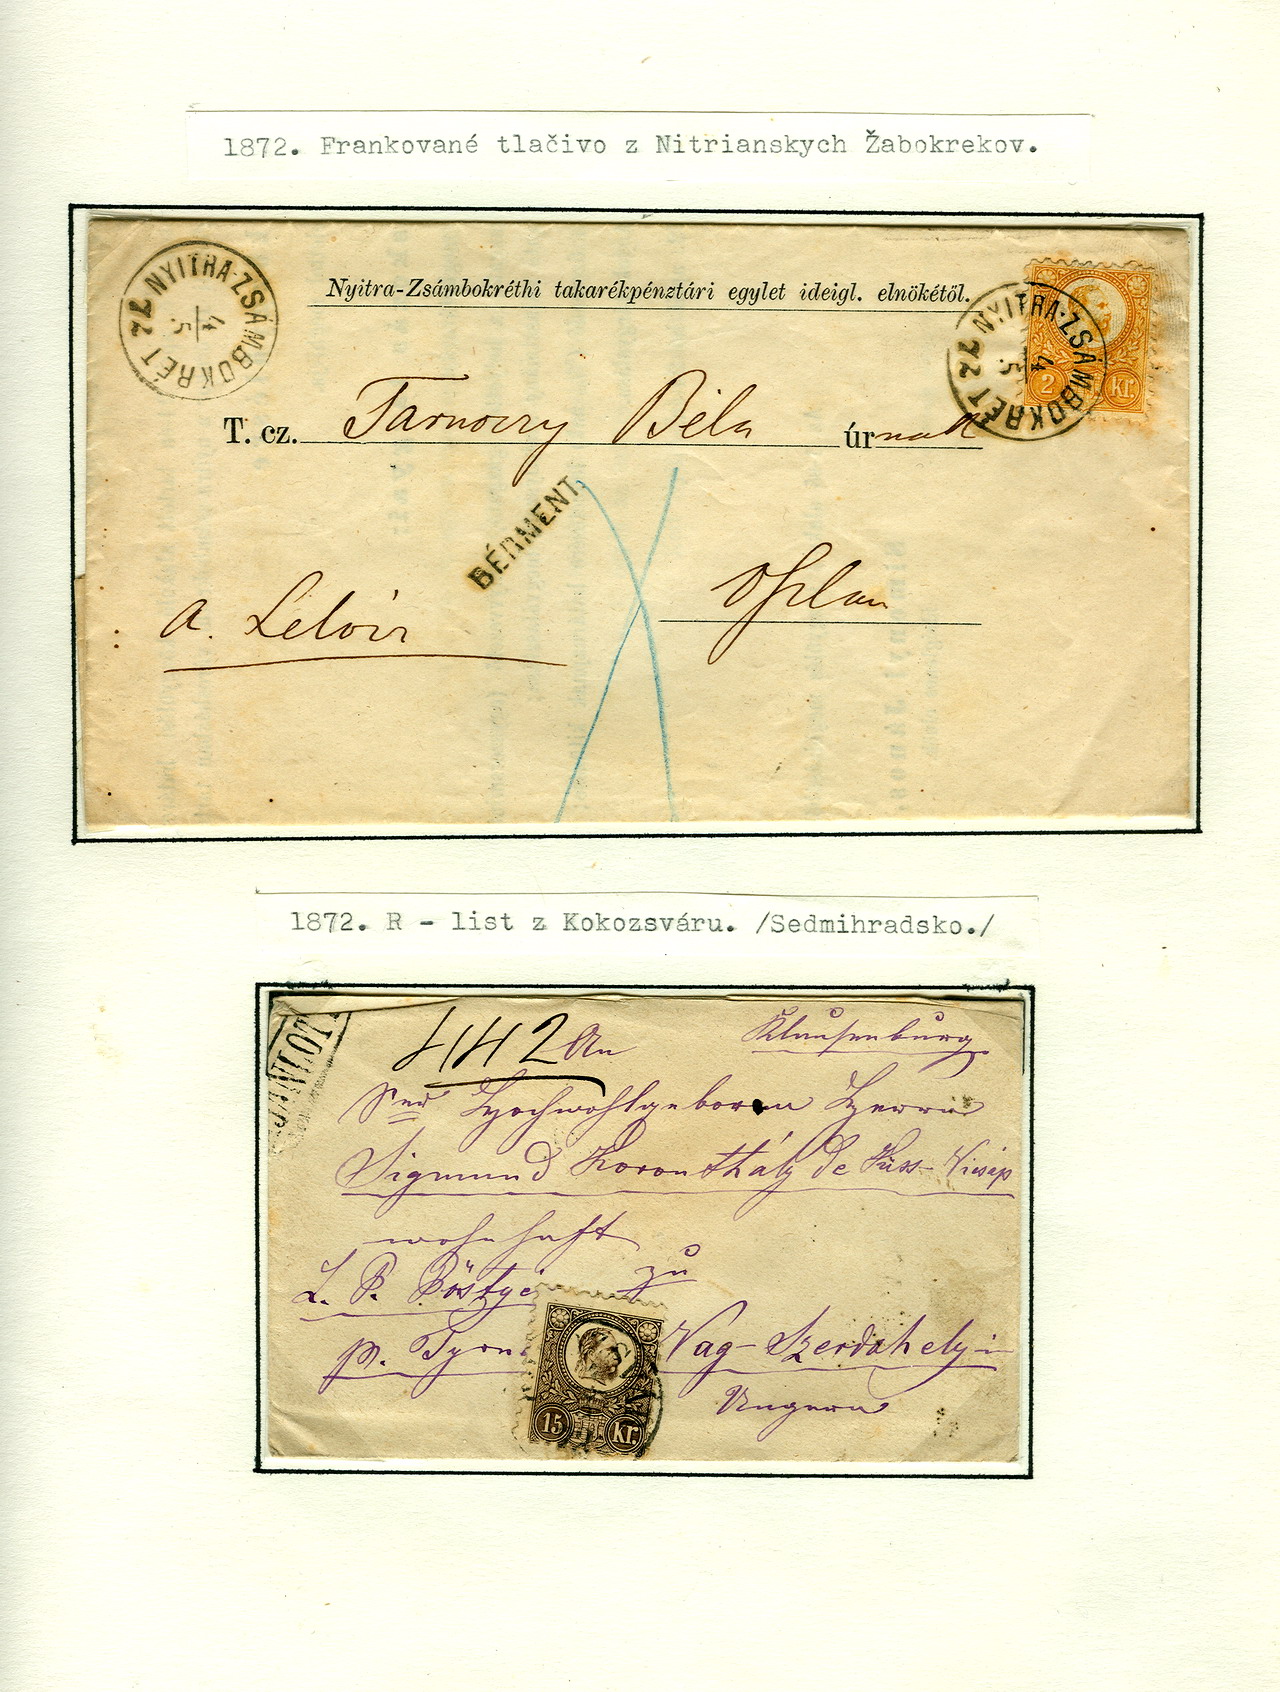 1872. Frankované tlačivo z Nitrianskych Žabokrekov.
NYITRA-ZSÁMBOKRÉT 72 4 5
Nyitra-Zsámbokréthi takarékpénztári egylet ideigl. elnökétől.
2 kr.
NYITRA-ZSÁMBOKRÉT 72 4 5
T. cz. Tarnoczy Béla úrnak
BÉRMENT.
a. Lelócz
Oszlan
1872. R - list z Kokozsváru. /Sedmihradsko./
AJÁNLOTT
442 An Klausenburg
Sr Hochwohlgeboren Herrn
Sigmund Koronthály de Kiss-
wohnhaft
L. P. zu
p. Tyrnau Vag-Szerdahely
Ungarn
15 kr.